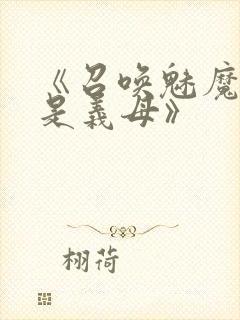 《召唤魅魔
是義母》
栩荷